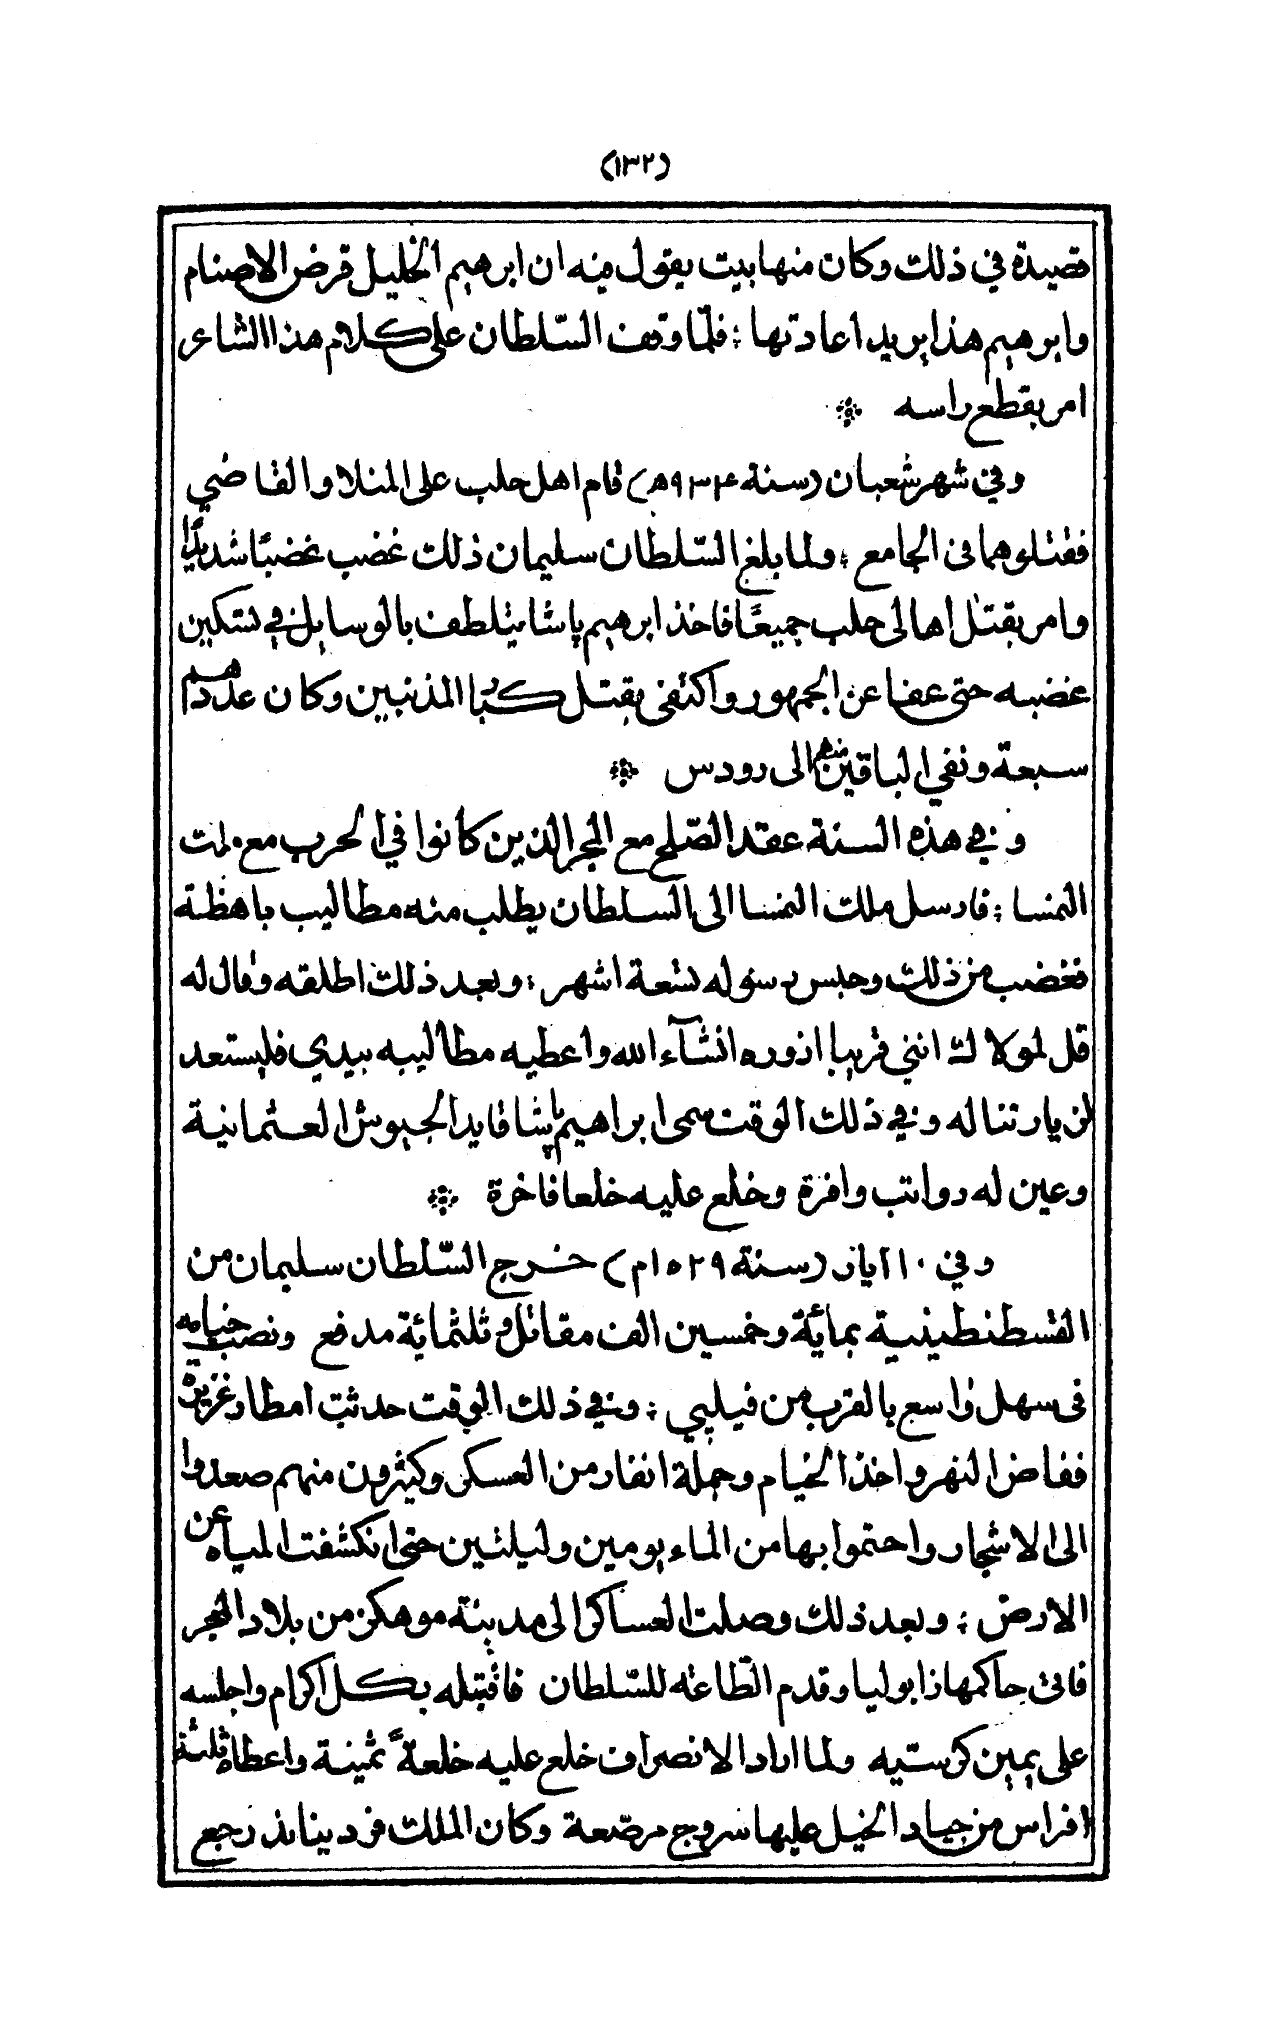 (١٣٢)
قصيدة في ذلك وكان منها بيت يقول فيه ان ابرهيم الخليل قرض الاصنام
وابرهيم هذا يريد اعادتها ؛ فلمّا وقف السّلطان على كلام هذا الشاعر
امر بقطع راسه
وفي شهر شعبان (سنة ٩٣٤ه) قام اهل حلب على المنلا والقاضي
فقتلوهما فى الجامع ؛ ولما بلغ السّلطان سليمان ذلك غضب غضبًا شديدًا
وامر بقتل اهالى حلب جميعًا فاخذ ابرهيم پاشا يتلطف بالوسايل في تسكين
غضبه حتى عفا عن الجمهور واكتفى بقتل كبُرا المذنبين وكان عددهم
سبعة ونفي الباقين منهم الى رودس
وفي هذه السنة عقد الصّلح مع المجر الذين كانوا في الحرب مع ملك
النمسا ؛ فارسل ملك النمسا الى السلطان يطلب منه مطاليب باهظة
فغضب من ذلك وحبس رسوله تسعة اشهر ؛ وبعد ذلك اطلقه وقال له
قل لمولاك انني قريبا ازوره انشآء الله واعطيه مطاليبه بيدي فليستعد
لزيارتنا له وفي ذلك الوقت سمى ابراهيم پاشا قايد الجيوش العثمانية
وعين له رواتب وافرة وخلع عليه خلعا فاخرة
وفي ١٠ اياز (سنة ١٥٢٩م) خرج السّلطان سليمان من
القسطنطينية بمائة وخمسين الف مقاتل وثلثمائة مدفع ونصب خيامه
فى سهل واسع بالقرب من فيلپي ؛ وفي ذلك الوقت حدثت امطار غزيرة
ففاض النهر واخذ الخيام وجملة انفار من العسكر وكثيرون منهم صعدوا
الى الاشجار واحتموا بها من الماء يومين وليلتين حتى انكشفت المياه عن
الارض ؛ وبعد ذلك وصلت العساكر الى مدينة موهكز من بلاد المجر
فاتى حاكمها زابوليا وقدم الطّاعة للسّلطان فاقتبله بكل اكرام واجلسه
على يمين كرستيه ولما اراد الانصراف خلع عليه خلعةً ثمينة واعطاه ثلثة
افراس من جياد الخيل عليها سروج مرصّعة وكان الملك فرديناند رجع